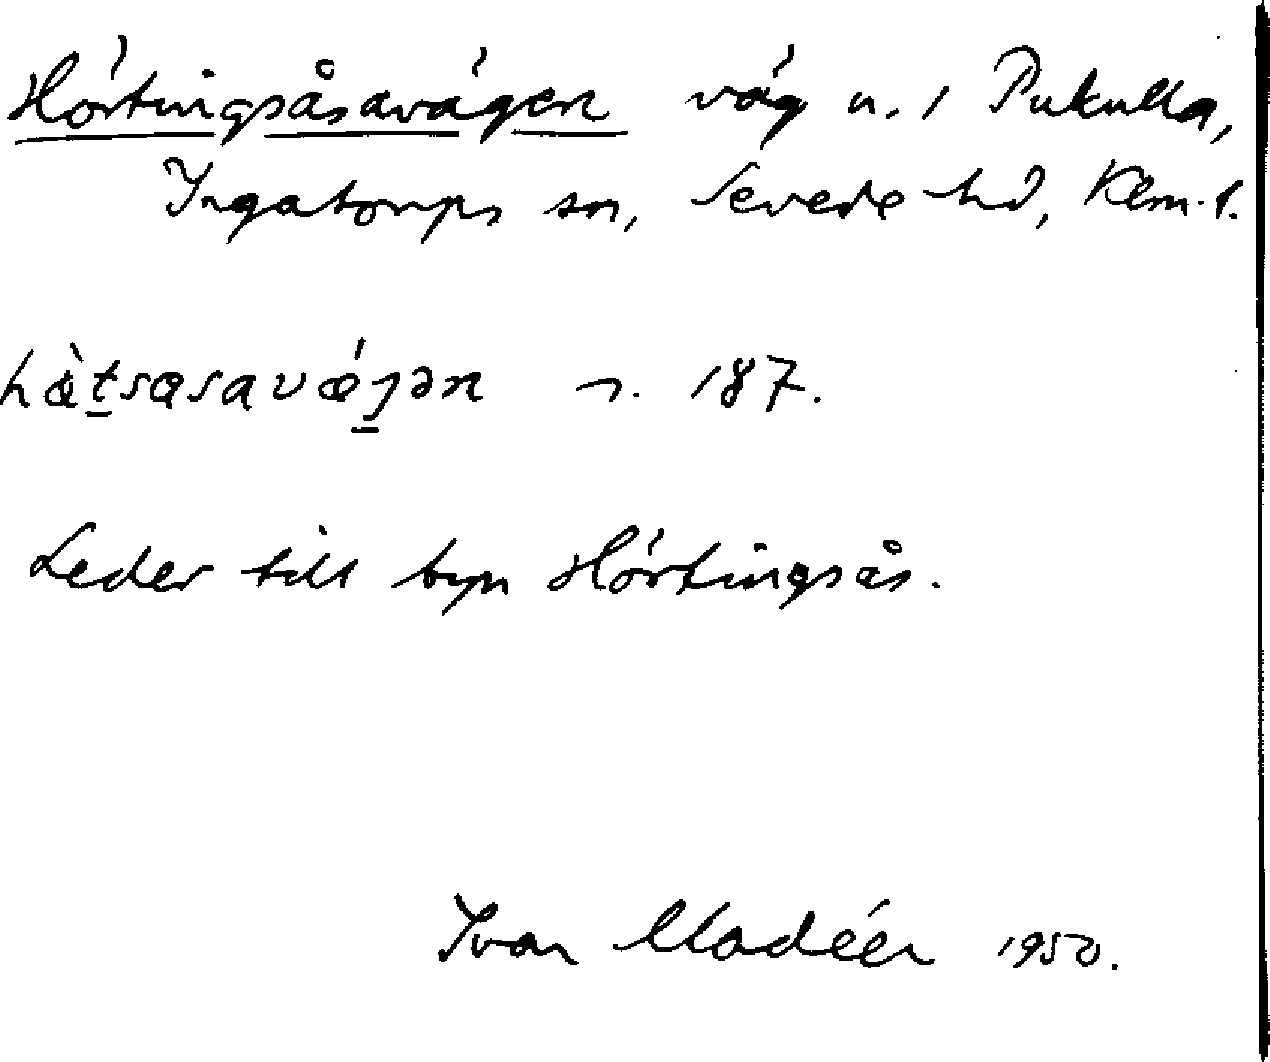 Hörtingsåsavägen väg n. i Pukulla,
Ingatorps sn, Sevede hd, Klm. l.
s. 187.
Leder till byn Hörtingsås.
Ivar Modéer 1950.